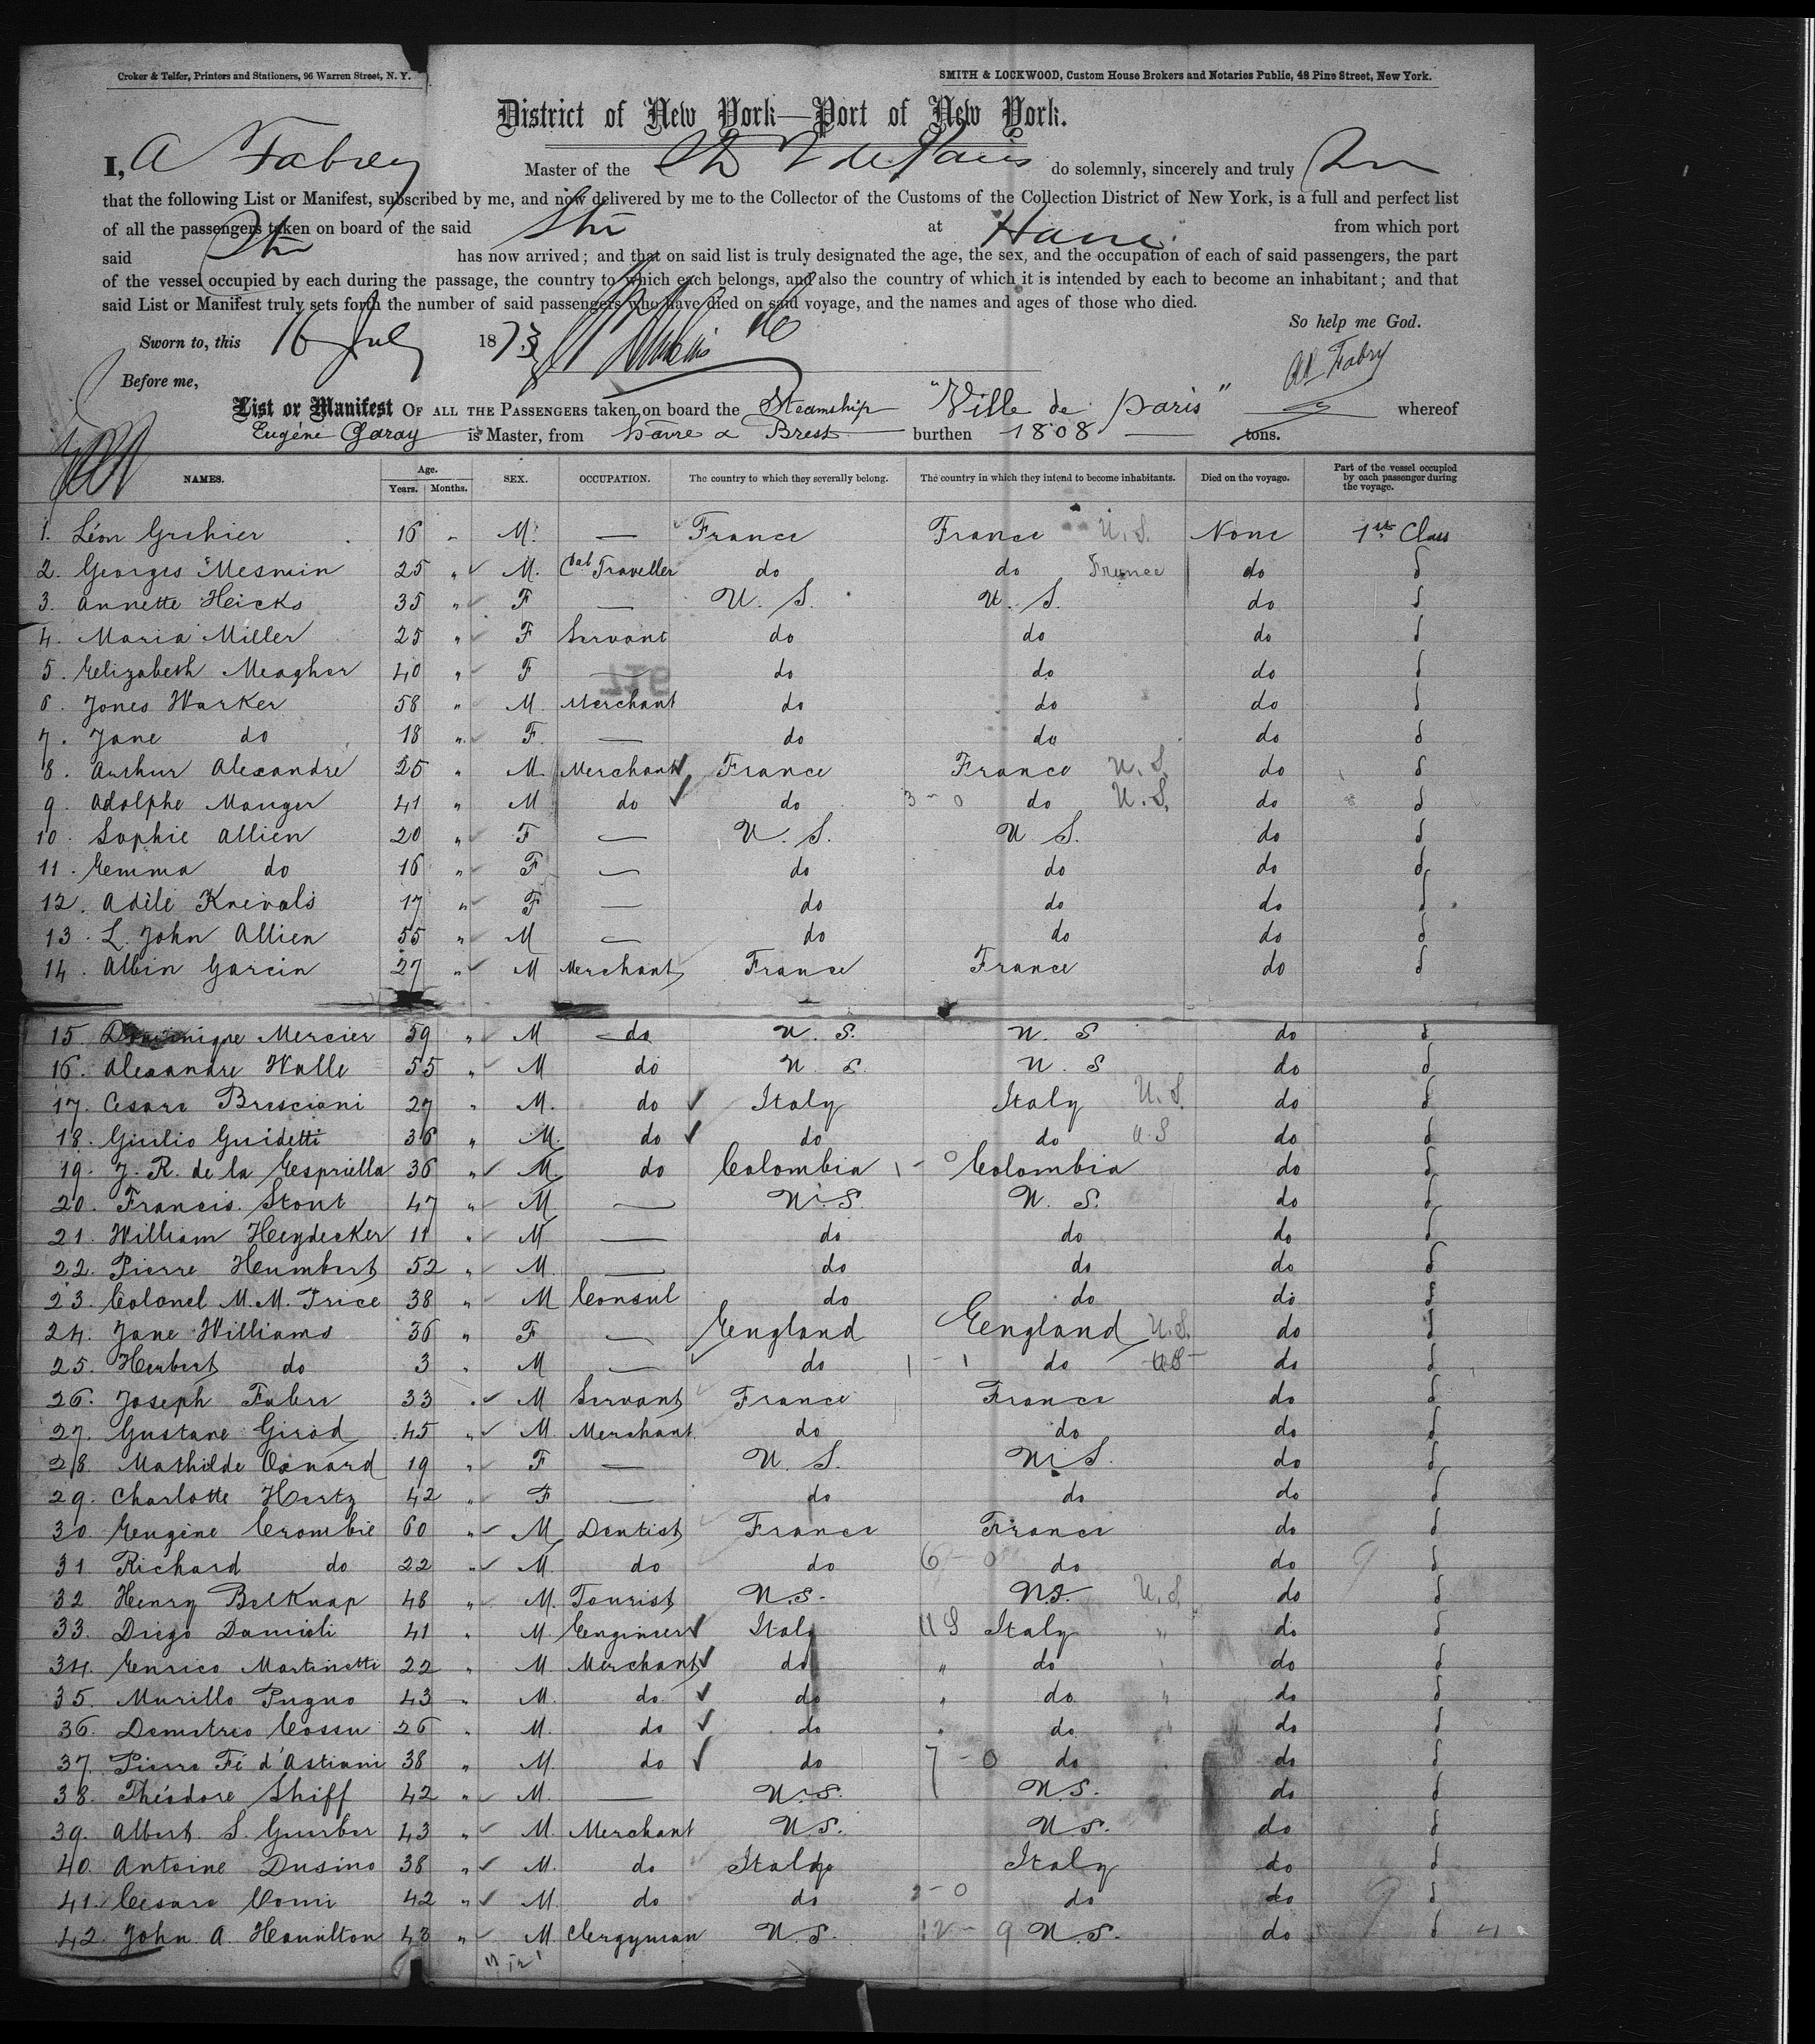 Croker & Telfer, Printers and Stationers, 96 Warren Street, N. Y.
SMITH & LOCKWOOD, Custom House Brokers and Notaries Public, 48 Pine Street, New York.
District of New York—Port of New York.
I, A Fabrey Master of the V de Paris do solemnly, sincerely and truly
that the following List or Manifest, subscribed by me, and now delivered by me to the Collector of the Customs of the Collection District of New York, is a full and perfect list
of all the passengers taken on board of the said Str at Havre from which port
said Str has now arrived; and that on said list is truly designated the age, the sex, and the occupation of each of said passengers, the part
of the vessel occupied by each during the passage, the country to which each belongs, and also the country of which it is intended by each to become an inhabitant; and that
said List or Manifest truly sets forth the number of said passengers who have died on said voyage, and the names and ages of those who died.
So help me God.
Sworn to, this 16 July 1873
Fabry
Before me,
List or Manifest OF ALL THE PASSENGERS taken on board the Steamship "Ville de Paris" whereof
Eugéne Garay is Master, from Havre & Brest burthen 1808 tons.
NAMES. Age. Years. Months. SEX. OCCUPATION. The country to which they severally belong. The country in which they intend to become inhabitants. Died on the voyage. Part of the vessel occupied by each passenger during the voyage.
1. Léon Grehier 16 " M. — France France U.S. None 1st Class
2. Georges Mesmin 25 " M. Cal Traveller do do France do d
3. Annette Heicks 35 " F — U. S. U. S. do d
4. Maria Miller 25 " F Servant do do do d
5. Elizabeth Meagher 40 " F — do do do d
6. Jones Warker 58 " M. Merchant do do do d
7. Jane do 18 " F. — do do do d
8. Arthur Alexandre 25 " M. Merchant France France U.S. do d
9. Adolphe Mauger 41 " M do do 3-0 do U.S. do d
10. Sophie Allien 20 " F — U. S. U S. do d
11. Emma do 16 " F — do do do d
12. Adèle Knevals 17 " F — do do do d
13. L. John Allien 55 " M — do do do d
14. Albin Garcin 27 " M Merchant France France do d
15. Dominique Mercier 59 " M do U. S. U. S do d
16. Alexandre Walle 55 " M do U. S. U. S do d
17. Cesare Bresciani 27 " M. do Italy Italy U.S. do d
18. Giulio Guidetti 36 " M. do do do U.S do d
19. J. R. de la Espriella 36 " M. do Colombia 1-0 Colombia do d
20. Francis Stout 47 " M — U.S. U. S. do d
21. William Heydecker 11 " M — do do do d
22. Pierre Humbert 52 " M. — do do do d
23. Colonel M. M. Price 38 " M Consul do do do d
24. Jane Williams 36 " F — England England U.S. do d
25. Herbert do 3 " M — do 1-1 do US do d
26. Joseph Fabre 33 " M Servant France France do d
27. Gustave Girod 45 " M. Merchant do do do d
28. Mathilde Oxnard 19 " F — U. S. U.S. do d
29. Charlotte Hertz 42 " F — do do do d
30. Eugène Crombie 60 " M Dentist France France do d
31. Richard do 22 " M. do do 6-0 do do d
32. Henry Belknap 48 " M. Tourist U.S. U.S. U.S. do d
33. Diego Damioli 41 " M. Engineer Italy US Italy " do d
34. Enrico Martinetti 22 " M. Merchant do " do " do d
35. Murillo Pugno 43 " M. do do " do " do d
36. Demetrio Cossu 26 " M. do do " do " do d
37. Pierre Fé d'Astiani 38 " M. do do 7-0 do do d
38. Théodore Shiff 42 " M. — U.S. U.S. do d
39. Albert S. Guerber 43 " M. Merchant U.S. U.S. do d
40. Antoine Dusino 38 " M. do Italy Italy do d
41. Cesare Comi 42 " M. do do 2-0 do do d
42. John A. Hamilton 43 " M. Clergyman U.S. 12-9 U.S. do d